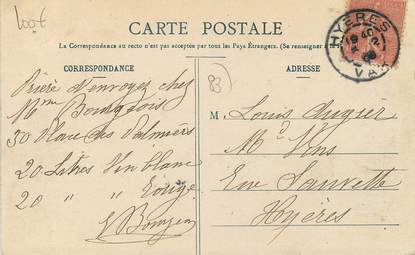 100€
CARTE POSTALE
La Correspondance au recto n'est pas acceptée par tous les Pays Étrangers. (Se renseigner à
CORRESPONDANCE
ADRESSE
HYÈRES
VAR
83
Prière d'envoyer chez
Mme Bourgeois
30 Place des Palmiers
20 Litres Vin blanc
20 " " Rouge
Bourgeois
M. Louis Augier
Md Vins
Rue Sauvette
Hyères